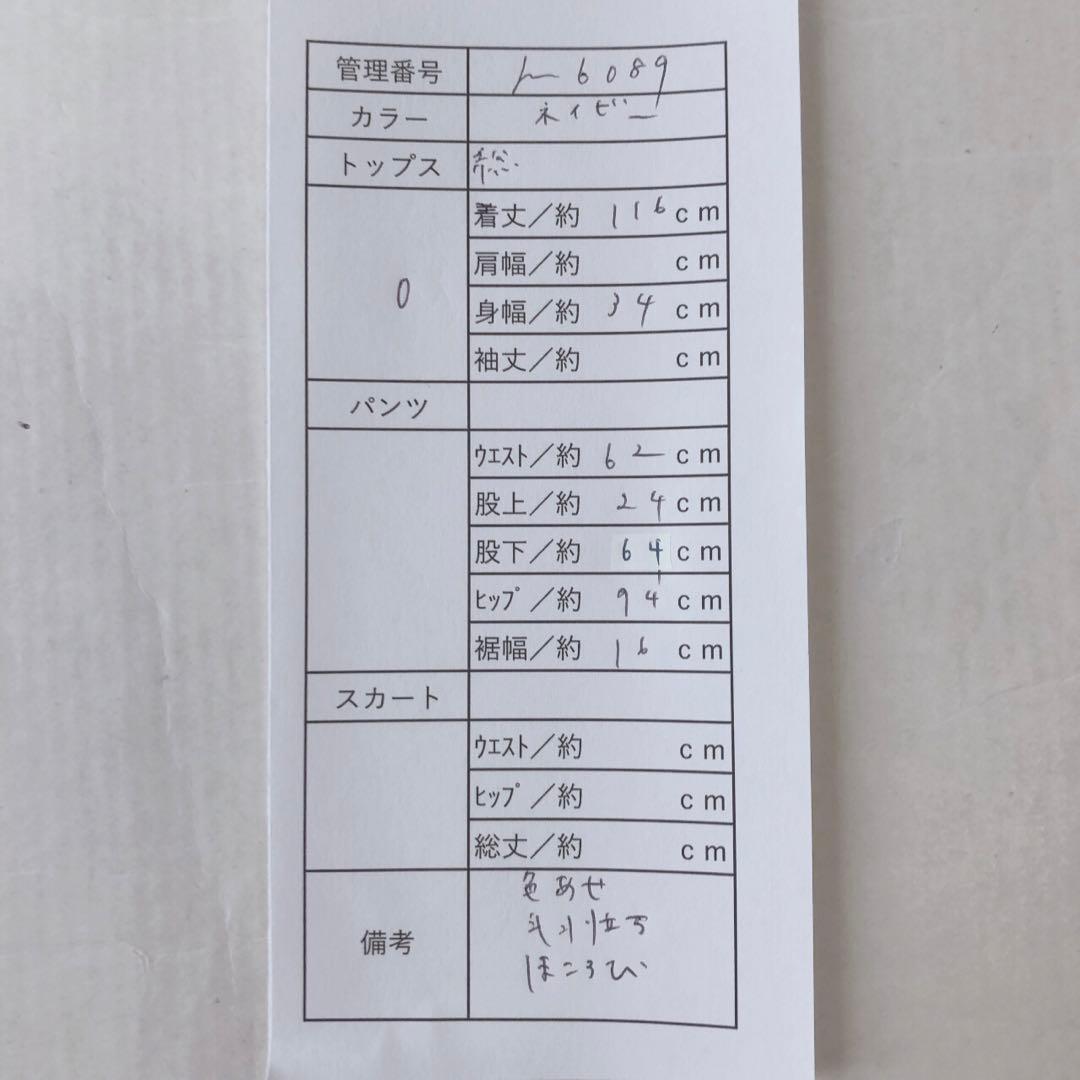 管理番号 6089
カラー ネイビー
トップス 総
着丈／約 116 cm
肩幅／約 cm
0
身幅／約 34 cm
袖丈／約 cm
パンツ
ウエスト／約 62 cm
股上／約 24 cm
股下／約 64 cm
ヒップ／約 94 cm
裾幅／約 16 cm
スカート
ウエスト／約 cm
ヒップ／約 cm
総丈／約 cm
備考
色あせ
毛羽立ち
ほころび